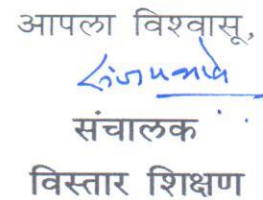 आपला विश्वासू,
संचालक
विस्तार शिक्षण